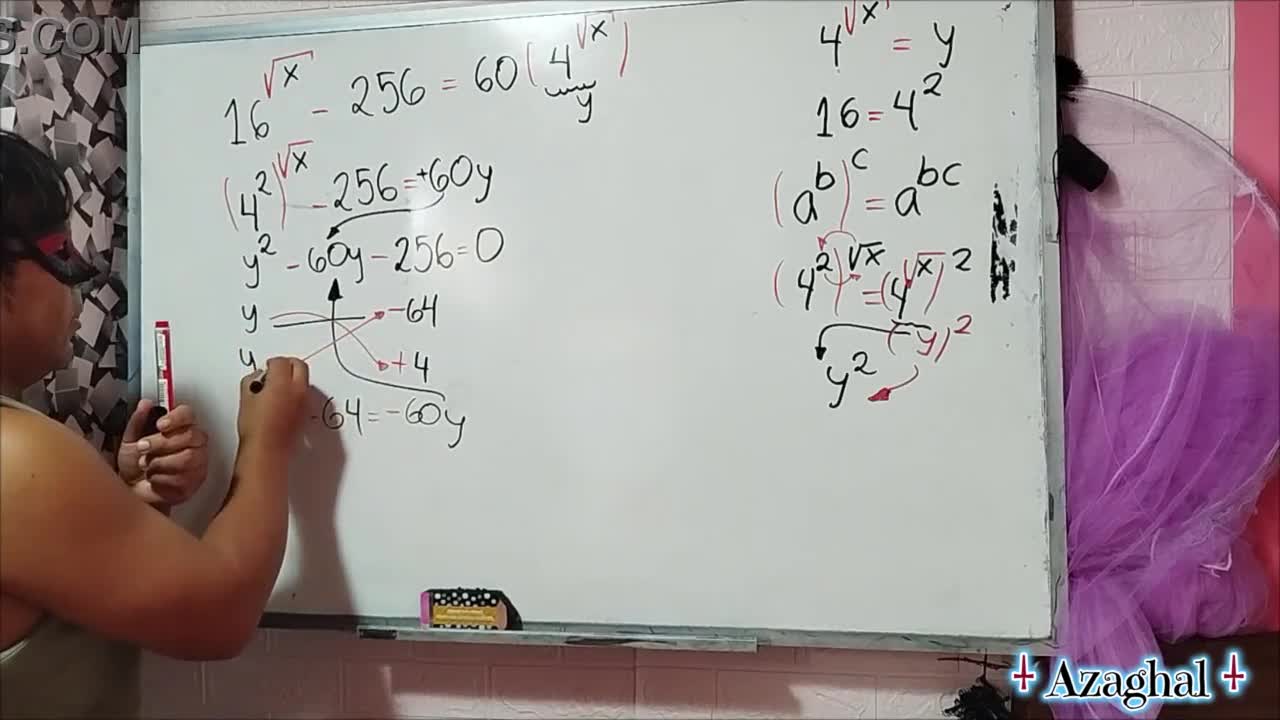 S.COM
16^√x - 256 = 60(4^√x)
y
(4^2)^√x - 256 = +60y
y^2 - 60y - 256 = 0
y -64
y +4
-64 = -60y
4^√x = y
16 = 4^2
(a^b)^c = a^bc
(4^2)^√x = (4^√x)^2
(y)^2
y^2
Azaghal